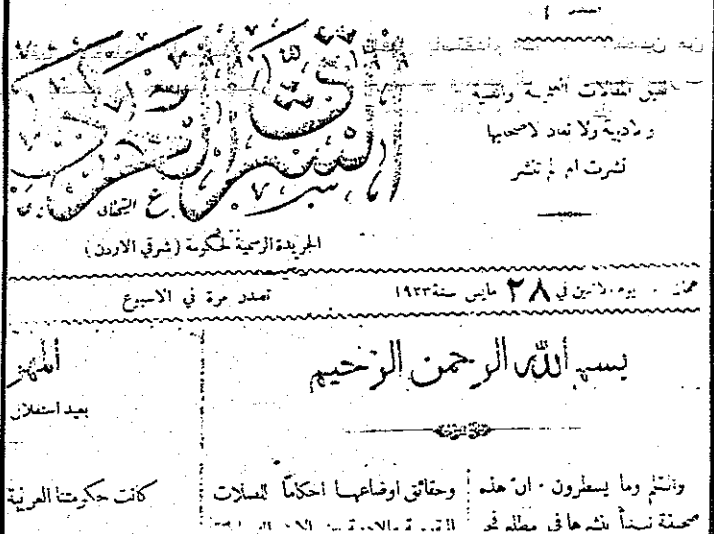 تقبل المقالات العلمية والفنية
والادبية ولا تعاد لاصحابها
نشرت ام لم تنشر
الشرق العربي
الجريدة الرسمية لحكومة (شرقي الاردن)
عمان . يوم الاثنين في ٢٨ مايس سنة ١٩٢٣
تصدر مرة في الاسبوع
بسم الله الرحمن الرحيم
والقلم وما يسطرون . ان هذه
صحيفة نبدأ بنشرها في مطلع فجر
وحقائق اوضاعها احكاماً للصلات
بعيد استقلال
كانت حكومتنا العربية